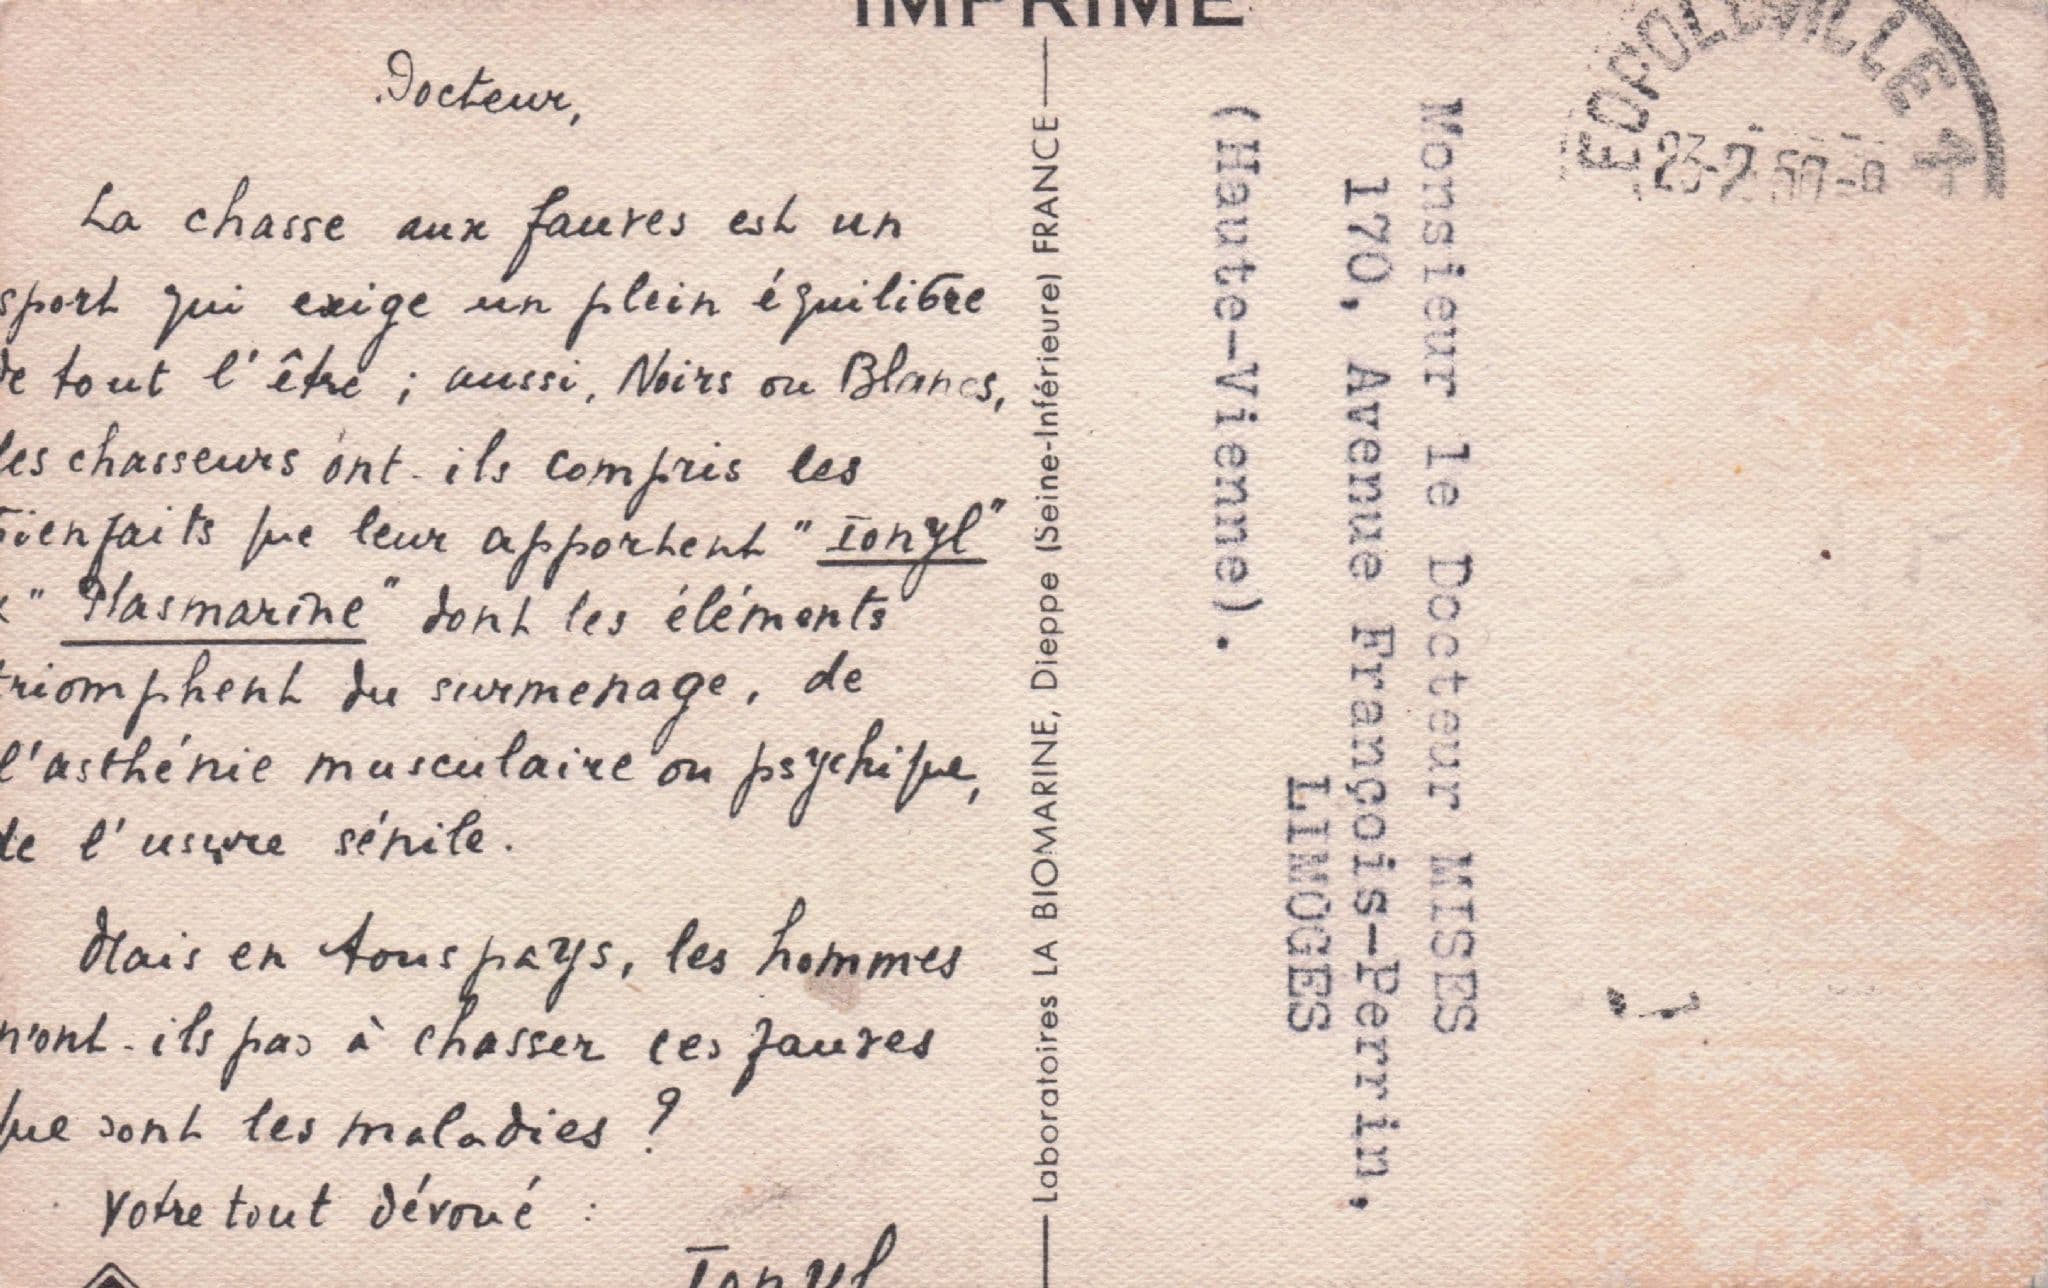 IMPRIMÉ
Docteur,
La chasse aux fauves est un
sport qui exige un plein équilibre
de tout l'être ; aussi, Noirs ou Blancs,
les chasseurs ont-ils compris les
bienfaits que leur apportent "Ionyl"
& "Plasmarine" dont les éléments
triomphent du surmenage, de
l'asthénie musculaire ou psychique,
de l'usure sénile.
Mais en tous pays, les hommes
n'ont-ils pas à chasser ces fauves
que sont les maladies ?
Votre tout dévoué :
Ionyl
Laboratoires LA BIOMARINE, Dieppe (Seine-Inférieure) FRANCE
Monsieur le Docteur MISES
170, Avenue François-Perrin,
LIMOGES
(Haute-Vienne).
EOPOLDVILLE